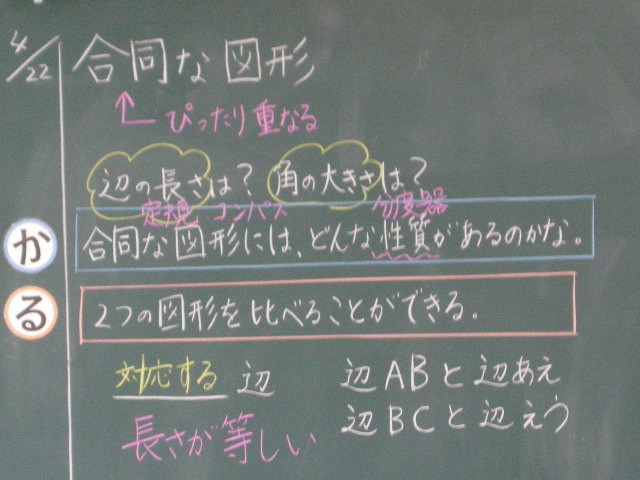 4/22
合同な図形
ぴったり重なる
辺の長さは？ 角の大きさは？
定規 コンパス 分度器
か
合同な図形には、どんな性質があるのかな。
る
2つの図形を比べることができる。
対応する 辺 辺ABと辺あえ
辺BCと辺えう
長さが等しい